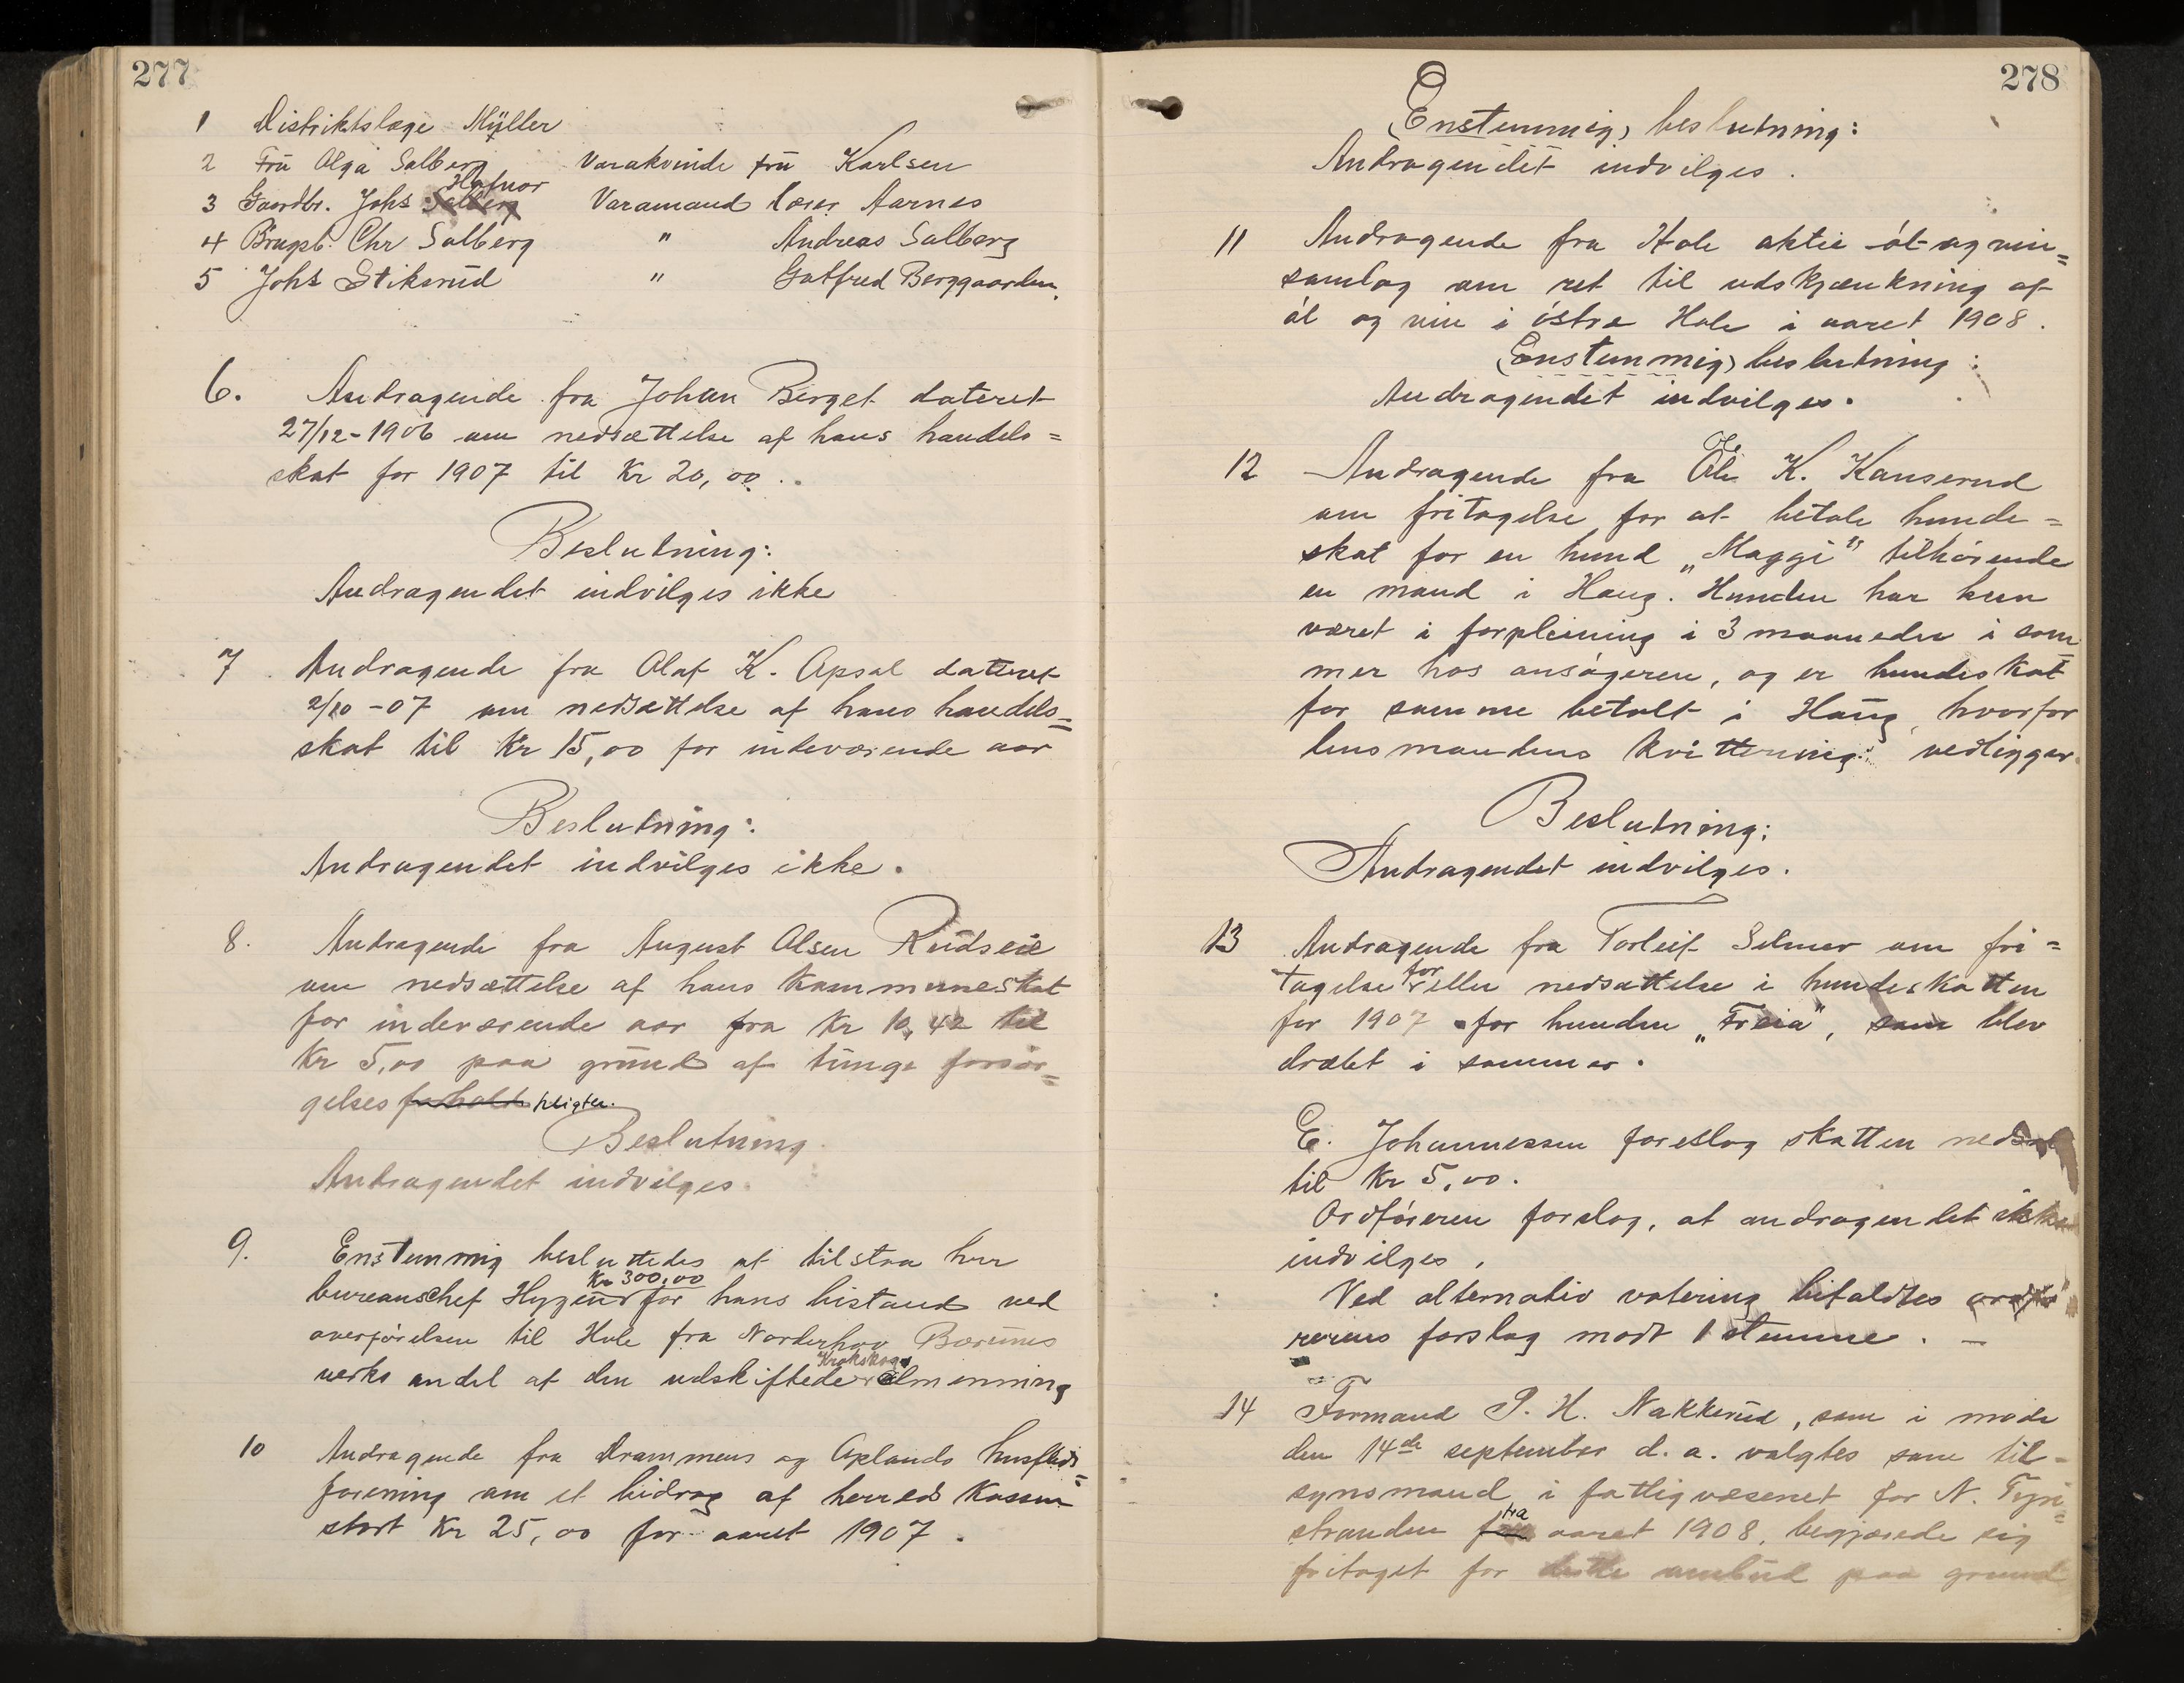 277
1 Distriktslæge Müller
2 Fru Olga Solberg Varakvinde Fru Karlsen
3 Gaardbr. Johs Solberg Hafnor Varamand Lærer Aarnes
4 Brugsb. Chr Solberg " Andreas Solberg
5 Johs Stiksrud " Gotfred Berggaarden.
6. Andragende fra Johan Berget dateret
27/12-1906 om nedsættelse af hans handels=
skat for 1907 til Kr 20,00.
Beslutning:
Andragendet indvilges ikke
7 Andragende fra Olaf K. Opsal dateret
2/10-07 om nedsættelse af hans handels=
skat til Kr 15,00 for indeværende aar
Beslutning:
Andragendet indvilges ikke.
8. Andragende fra August Olsen Rudseie
om nedsættelse af hans kommuneskat
for indeværende aar fra Kr 10,42 til
Kr 5,00 paa grund af tunge forsør=
gelses forhold pligter.
Beslutning
Andragendet indvilges.
9. Enstemmig besluttedes at tilstaa herr
bureauschef Hygen Kr 300,00 for hans bistand ved
overførelsen til Hole fra Norderhov Bærums
verks andel af den udskiftede Krokskogs almenning
10 Andragende fra Drammens og Oplands husflids=
forening om et bidrag af herredskassen
stort Kr 25,00 for aaret 1907.
278
Enstemmig beslutning:
Andragendet indvilges.
11 Andragende fra Hole aktie øl- og vin=
samlag om ret til udskjænkning af
øl og vin i østre Hole i aaret 1908.
Enstemmig beslutning:
Andragendet indvilges.
12 Andragende fra Ole K. Kanserud
om fritagelse for at betale hunde=
skat for en hund „Maggi" tilhørende
en mand i Haug. Hunden har kun
været i forpleining i 3 maaneder i som=
mer hos ansøgeren, og er hundeskat
for samme betalt i Haug, hvorfor
lensmandens kvittering vedligger.
Beslutning:
Andragendet indvilges.
13 Andragende fra Torleif Selmer om fri=
tagelse for eller nedsættelse i hundeskatten
for 1907 for hunden „Freia", som blev
dræbt i sommer.
E. Johannessen foreslog skatten nedsat
til Kr 5,00.
Ordføreren forslog, at andragendet ikke
indvilges.
Ved alternativ votering bifaldtes ordfø=
rerens forslag modt 1 stemme.
14 Formand P. H. Nakkerud, som i møde
den 14de september d. a. valgtes som til=
synsmand i fattigvæsenet for N. Tyri=
stranden fra aaret 1908, begjærede sig
fritaget for dette ombud paa grund